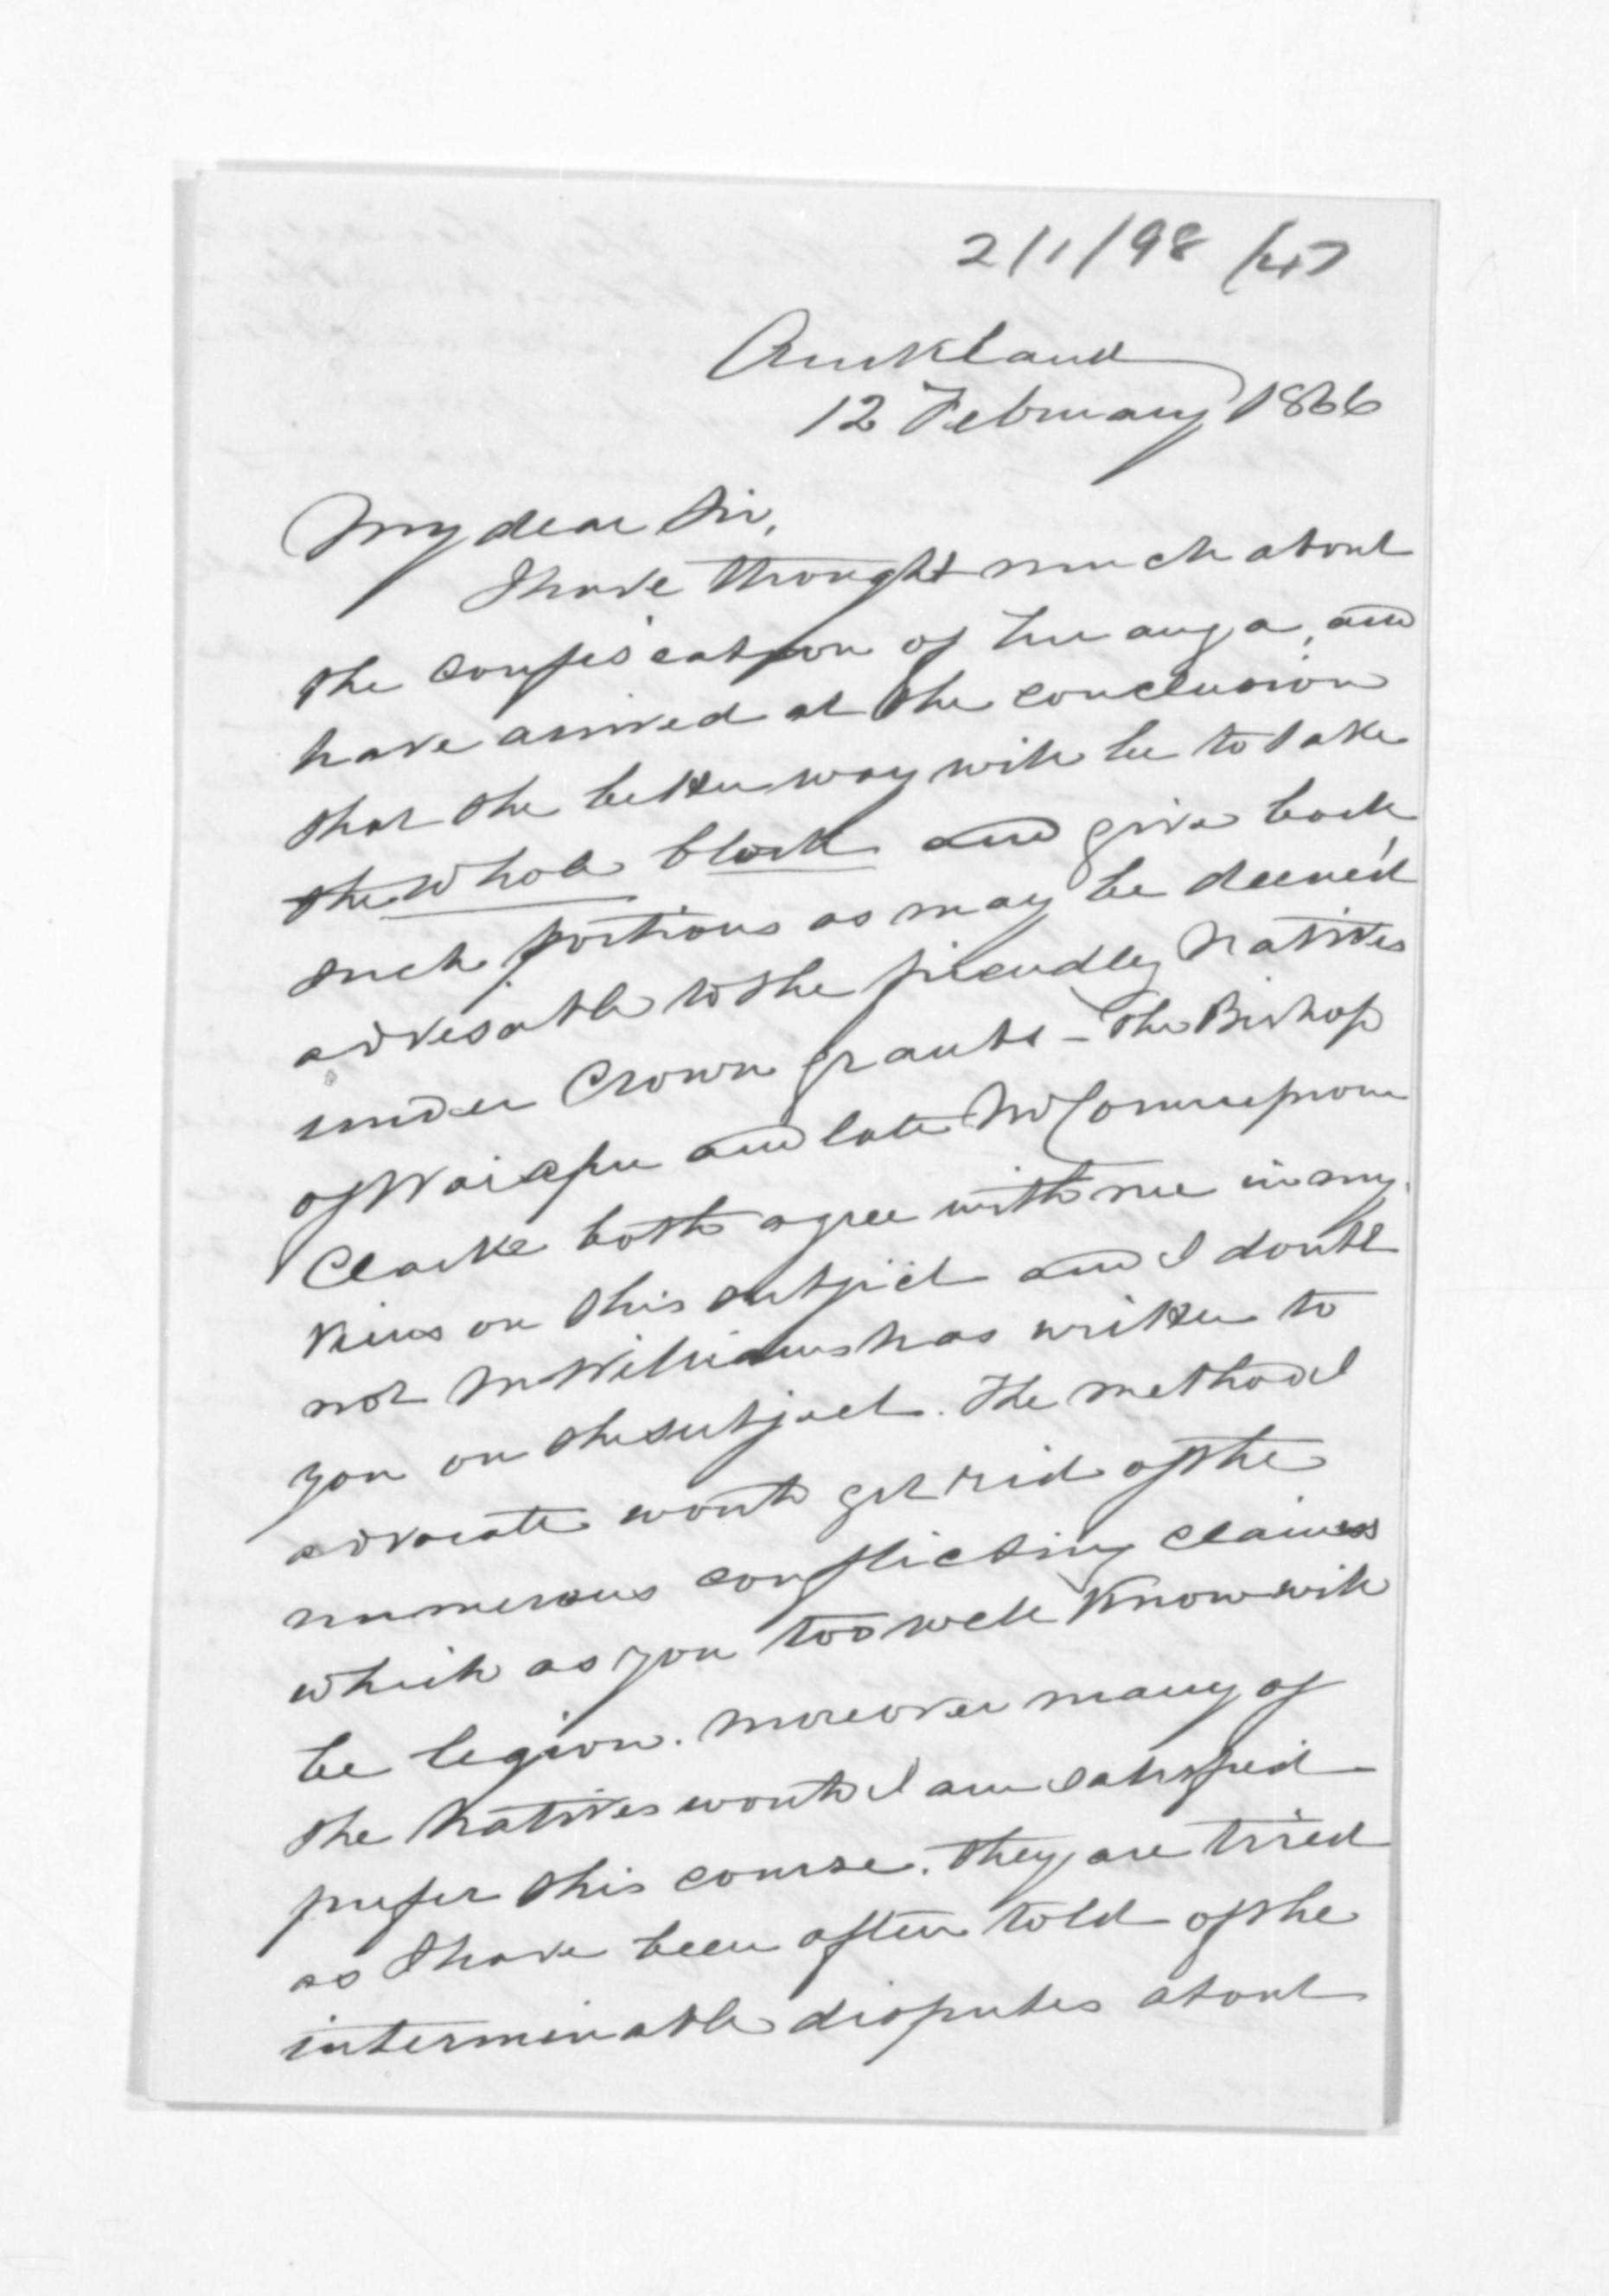 2/1/98 /47
Auckland
12 February 1866
My dear Sir,
I have thought much about
the confiscation of Turanga, and
have arrived at the conclusion
that the better way will be to take
the whole block and give back
such portions as may be deemed
advisable to the friendly Natives
under Crown grants - The Bishop
of Waiapu and late
Clarke both agree with me in my
views on this subject and I doubt
not Mr Williams has written to
you on the subject. The method I
advocate would get rid of the
numerous conflicting claims
which as you too well know will
be legion. Moreover many of
the Natives would I am satisfied
prefer this course. They are tired
as I have been often told of the
interminable disputes about